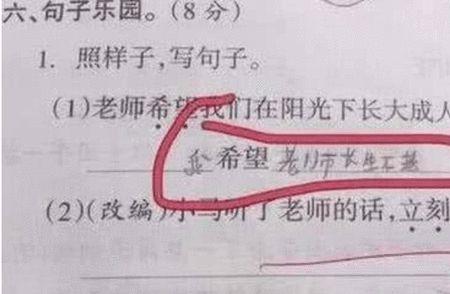 六、句子乐园。(8分)
1. 照样子,写句子。
(1)老师希望我们在阳光下长大成人
我 希望 老师长生不老
(2)(改编)小马听了老师的话,立刻